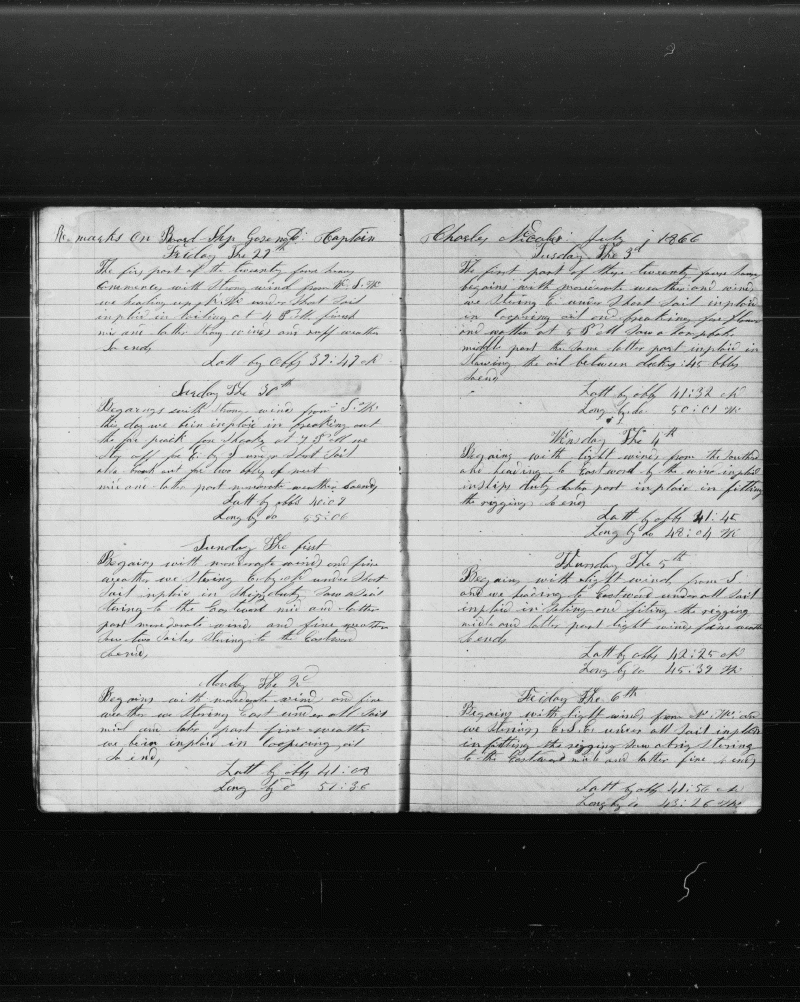 Remarks On Board Ship Captain
Friday The 29th
The firs part of the twenty four hours
Commences with Strong wind from W. S. W
we heading up N. W under Short Sail
inplaid in boiling at 4 P M fined
mid and latter strong winds and ruff weather
So ends
Latt by Obbs 39:47 N
Saturday The 30th
Begains with Strong winds from S. W.
this day we bein inplaid in breaking out
the fore peack for Shooks at 7 P M we
off for E. by S under Short Sail
also brook out for two bbls of meet
mid and later part moderate weather So ends
Latt by obbs 40:07
Long by do 55:06
Sunday The first
Begains with moderate winds and fine
weather we Stering E. by S under Short
Sail inplaid in Ships duty Saw a Sail
Stering to the Eastward mid and latter
part moderate winds and fine weather
Saw two Sailes Stering to the Eastward
So ends
Monday The 2d
Begains with moderate wind and fine
weather we stering East under all Sail
mid and later part fine weather
we bein inplaid in Coopering oil
So ends
Latt by obbs 41:08
Long by do 51:36
Charles Nicols July 1866
Tuesday The 3d
The first part of these twenty foure hours
begains with moderate weather and winds
we Stering E under Short Sail inplaid
in Coopering oil and breaking
and watter at 5 P M Saw a
middle part the Same latter part inplaid in
Stowing the oil between decks: 45 bbls
So ends
Latt by obbs 41:32 N
Long by do 50:01 W
Wensday The 4th
Begains with light winds from the Southard
and heading to Eastward by the wind inplaid
in Ships duty later part in plaid in fitting
the rigging So ends
Latt by obbs 41:45
Long by do 48:04 W
Thursday The 5th
Begains with light winds from S
and we heading to Eastward under all Sail
inplaid in and fiting the rigging
midle and latter part light winds fine weather
So ends
Latt by obbs 42:25 N
Long by do 45:39 W
Friday The 6th
Begains with light winds from N. W. and
we Stering E. S. E. under all Sail inplaid
in fitting the rigging Saw a brig Stering
to the Eastward midle and latter fine So ends
Latt by obbs 41:56 N
Long by do 43:26 W